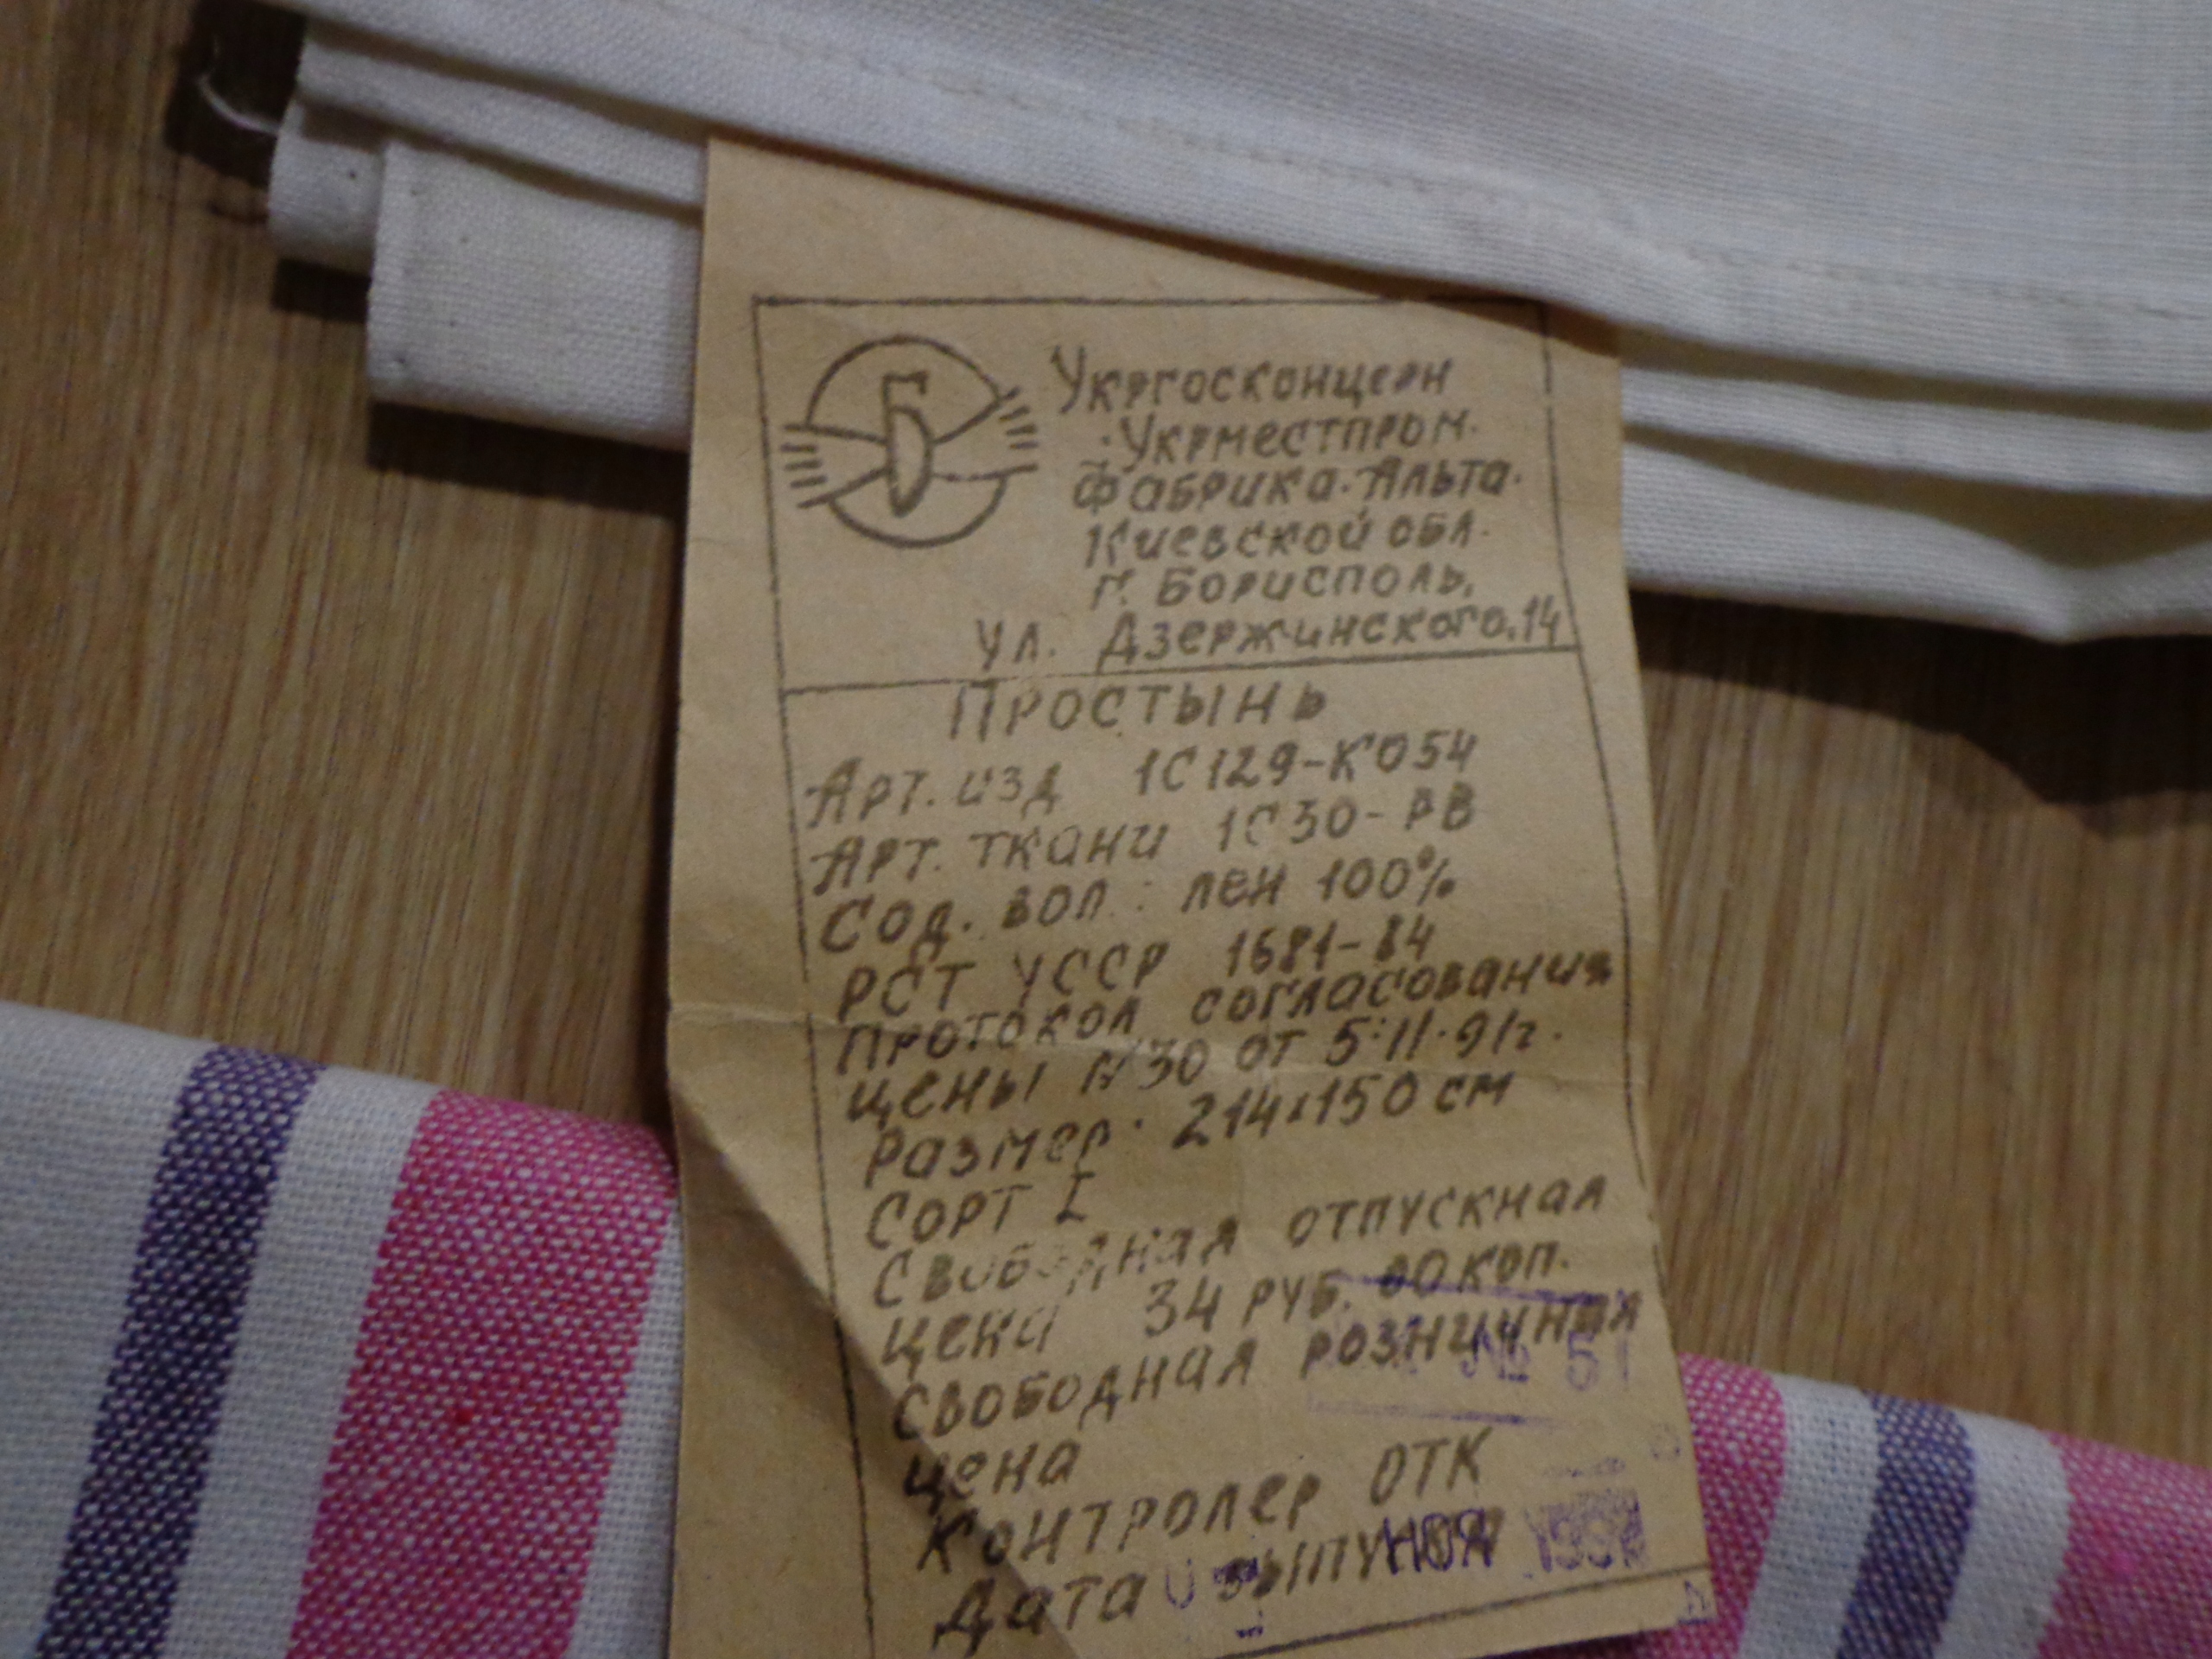 Б
Укргосконцерн
·Укрместпром·
Фабрика·Альта·
Киевской обл.
г. Борисполь,
ул. Дзержинского,14
Простынь
Арт. изд 1С129-КО54
Арт. ткани 1С30-РВ
Сод. вол.: лен 100%
РСТ УССР 1681-84
Протокол согласования
цены №30 от 5·11·91г.
Размер· 214х150 см
Сорт I
Свободная отпускная
цена 34 руб. 00 коп.
Свободная розничная
№ 51
цена
Контролер ОТК
Дата выпуска
НОЯ 1991